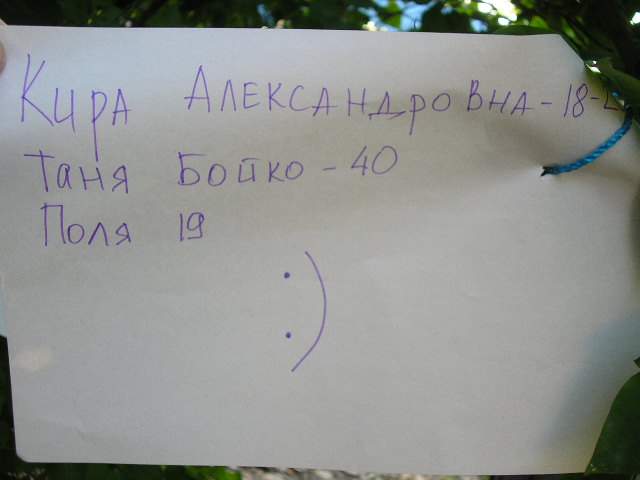 Кира Александровна - 18 -
Таня Бойко - 40
Поля 19
:)